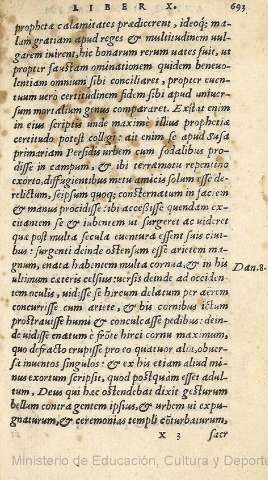 LIBER X. 693
prophetæ calamitates prædicerent, ideoq; ma-
lam gratiam apud reges & multitudinem vul-
garem inirent, hic bonarum rerum uates fuit, ut
propter faustam ominationem quidem beneuo-
lentiam omnium sibi conciliaret, propter euen-
tuum uero certitudinem fidem sibi apud uniuer-
sum mortalium genus compararet. Extat enim
in eius scriptis unde maximè illius prophetiæ
certitudo potest colligi: ait enim se apud Susa
primariam Persidis urbem cum sodalibus pro-
disse in campum, & ibi terræmotu repentino
exorto, diffugientibus metu amicis solum esse de-
relictum, seipsum quoq; consternatum in faciem
& manus procidisse: ibi accessisse quendam ex-
citantem se & iubentem ut surgeret ac uideret
quæ post multa secula euentura essent suis ciui-
bus: surgenti deinde ostensum esse arietem ma-
gnum, enata habentem multa cornua, & in his
ultimum cæteris celsius: uersis deinde ad occiden-
tem oculis, uidisse se hircum delatum per aerem
concurrisse cum ariete, & bis cornibus ictum
prostrauisse humi & conculcasse pedibus: dein-
de uidisse enatum è frōte hirci cornu maximum,
quo defracto erupisse pro eo quatuor alia, obuer-
sa inuentos singulos: & ex his etiam aliud mi-
nus exortum scripsit, quod postquàm esset adul-
tum, Deus qui hæc ostendebat dixit gesturum
bellum contra gentem ipsius, & urbem ui expu-
gnaturum, & ceremonias templi cōturbaturum,
Dan.8.
X 3 sacr
Ministerio de Educación, Cultura y Deporte